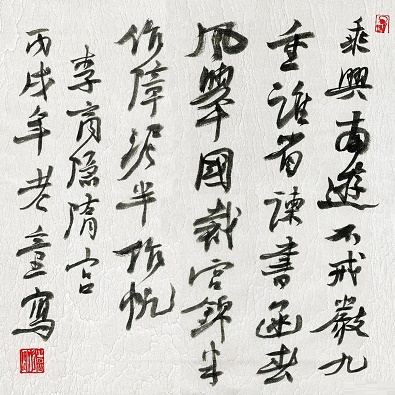 乘興南遊不戒嚴九
重誰省諫書函春
風舉國裁宮錦半
作障泥半作帆
李商隐隋宫
丙戌年老童寫